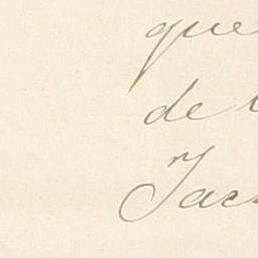 que
de
Jac